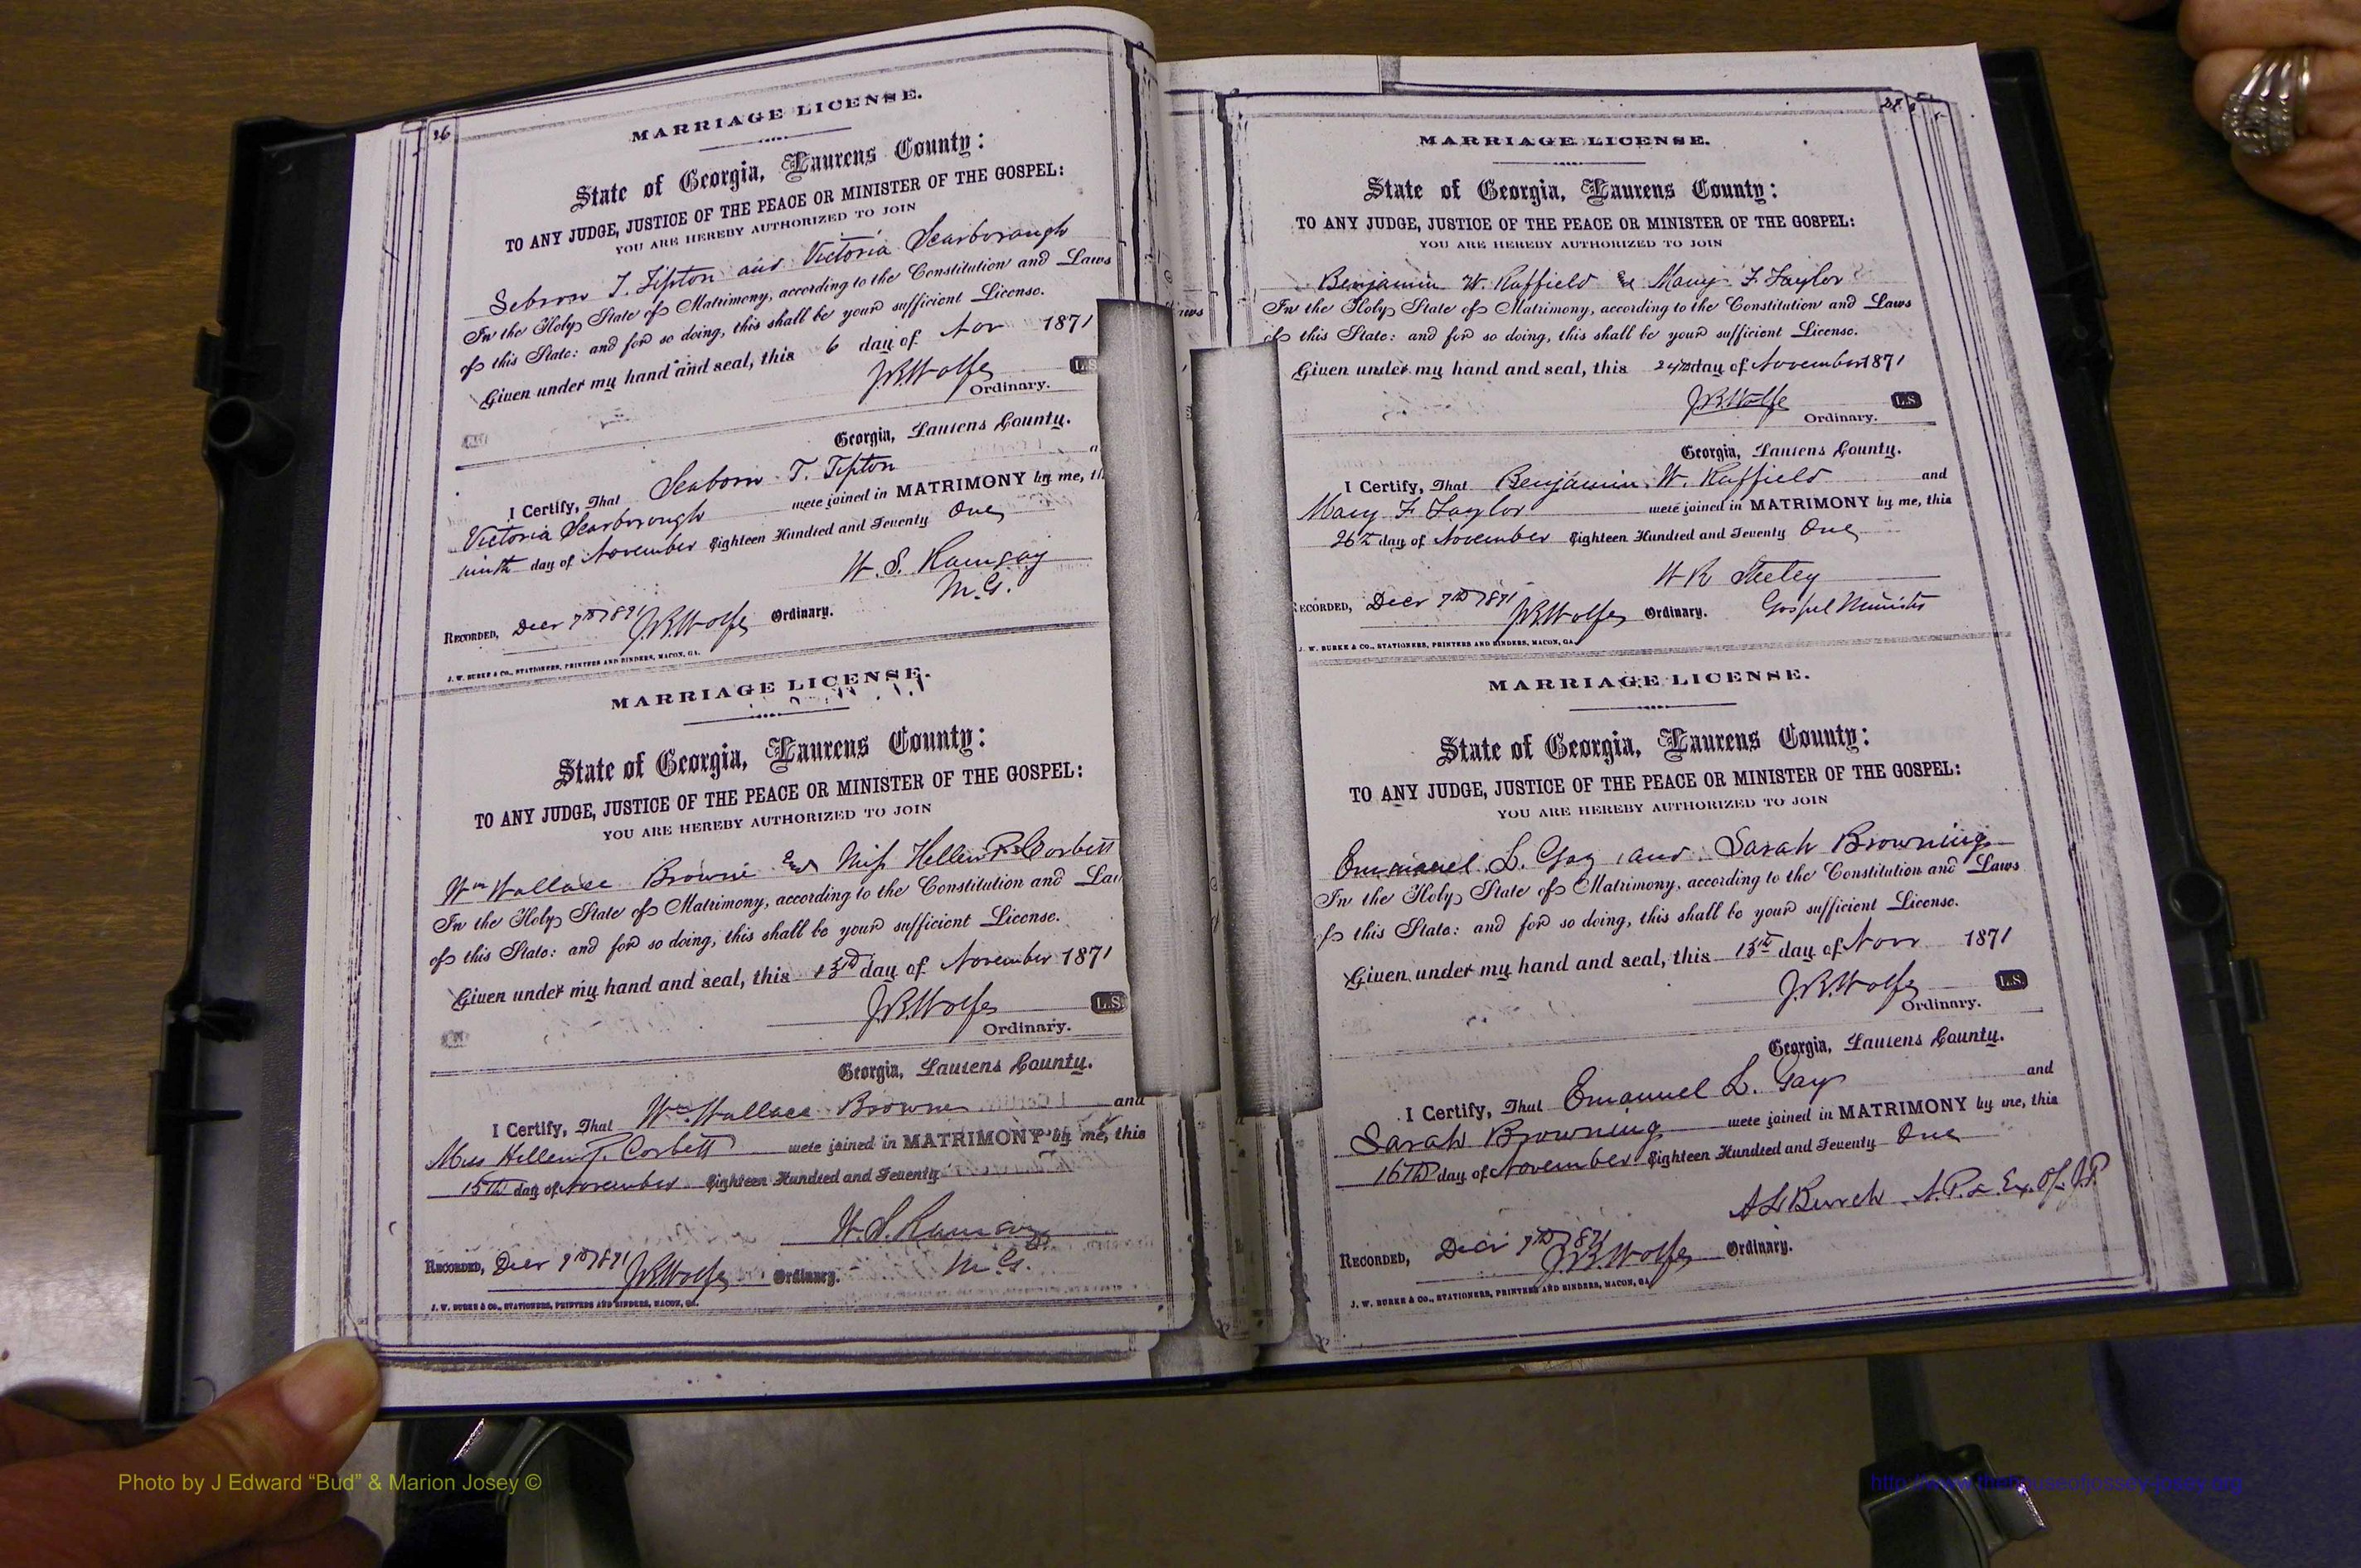 26
MARRIAGE LICENSE.
State of Georgia, Laurens County:
TO ANY JUDGE, JUSTICE OF THE PEACE OR MINISTER OF THE GOSPEL:
YOU ARE HEREBY AUTHORIZED TO JOIN
Seborn T. Tipton and Victoria Scarborough
In the Holy State of Matrimony, according to the Constitution and Laws
of this State: and for so doing, this shall be your sufficient License.
Given under my hand and seal, this 6 day of Nov 1871
J.B. Wolfe
Ordinary.
Georgia, Laurens County.
I Certify, That Seaborn T. Tipton
Victoria Scarborough were joined in MATRIMONY by me,
ninth day of November Eighteen Hundred and Seventy One
W. S. Ramsay
M. G.
RECORDED, Decr 7th 1871 J.B. Wolfe Ordinary.
J. W. BURKE & CO., STATIONERS, PRINTERS AND BINDERS, MACON, GA.
MARRIAGE LICENSE.
State of Georgia, Laurens County:
TO ANY JUDGE, JUSTICE OF THE PEACE OR MINISTER OF THE GOSPEL:
YOU ARE HEREBY AUTHORIZED TO JOIN
Wm Wallace Browne and Miss Hellen P. Corbett
In the Holy State of Matrimony, according to the Constitution and
of this State: and for so doing, this shall be your sufficient License.
Given under my hand and seal, this 13th day of November 1871
J.B. Wolfe
L.S.
Ordinary.
Georgia, Laurens County.
I Certify, That Wm Wallace Browne and
Miss Hellen P. Corbett were joined in MATRIMONY by me, this
15th day of November Eighteen Hundred and Seventy
W. S. Ramsay
M. G.
RECORDED, Decr 9th 1871 J.B. Wolfe Ordinary.
J. W. BURKE & CO., STATIONERS, PRINTERS AND BINDERS, MACON, GA.
MARRIAGE LICENSE.
State of Georgia, Laurens County:
TO ANY JUDGE, JUSTICE OF THE PEACE OR MINISTER OF THE GOSPEL:
YOU ARE HEREBY AUTHORIZED TO JOIN
Benjamin W. Raffield & Mary F. Taylor
In the Holy State of Matrimony, according to the Constitution and Laws
of this State: and for so doing, this shall be your sufficient License.
Given under my hand and seal, this 24th day of November 1871
J.B. Wolfe
L.S.
Ordinary.
Georgia, Laurens County.
I Certify, That Benjamin W. Raffield and
Mary F. Taylor were joined in MATRIMONY by me, this
26th day of November Eighteen Hundred and Seventy One
W R Steeley
Gospel Minister
RECORDED, Decr 9th 1871 J.B. Wolfe Ordinary.
J. W. BURKE & CO., STATIONERS, PRINTERS AND BINDERS, MACON, GA.
MARRIAGE LICENSE.
State of Georgia, Laurens County:
TO ANY JUDGE, JUSTICE OF THE PEACE OR MINISTER OF THE GOSPEL:
YOU ARE HEREBY AUTHORIZED TO JOIN
Emanuel L. Gay and Sarah Browning
In the Holy State of Matrimony, according to the Constitution and Laws
of this State: and for so doing, this shall be your sufficient License.
Given under my hand and seal, this 13th day of Novr 1871
J.B. Wolfe
L.S.
Ordinary.
Georgia, Laurens County.
I Certify, That Emanuel L. Gay and
Sarah Browning were joined in MATRIMONY by me, this
16th day of November Eighteen Hundred and Seventy One
A L Burch N.P. & Ex. Of. J.P.
RECORDED, Decr 9th 1871 J.B. Wolfe Ordinary.
J. W. BURKE & CO., STATIONERS, PRINTERS AND BINDERS, MACON, GA
Photo by J Edward “Bud” & Marion Josey ©
http://www.thehouseofjossey-josey.org